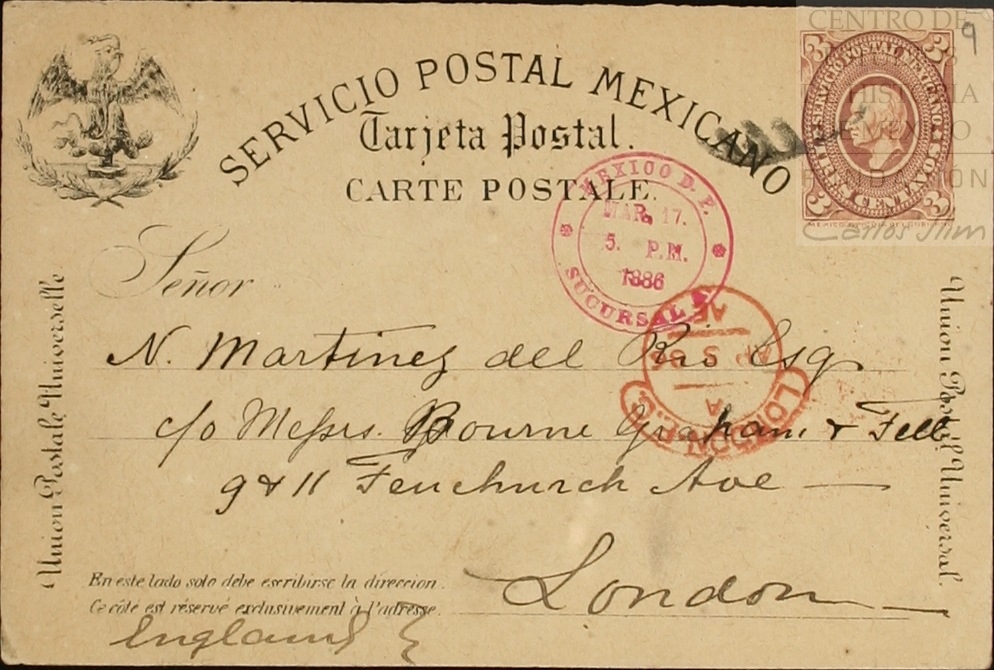 SERVICIO POSTAL MEXICANO
Tarjeta Postal.
CARTE POSTALE.
CENTRO DE
9
MEXICO
Carlos Slim
3 3
SERVICIO POSTAL MEXICANO
3 3
MEXICO D. F.
MAR. 17.
5. P.M.
1886
SUCURSAL
Señor
Union Postale Universelle
Union Postal Universal.
N. Martinez del Rio Esq
c/o Messrs. Bourne Graham & Fell
9 & 11 Fenchurch Ave
London
LONDON
A
AP 3 86
AE
En este lado solo debe escribirse la direccion.
Ce côté est réservé exclusivement à l'adresse.
England